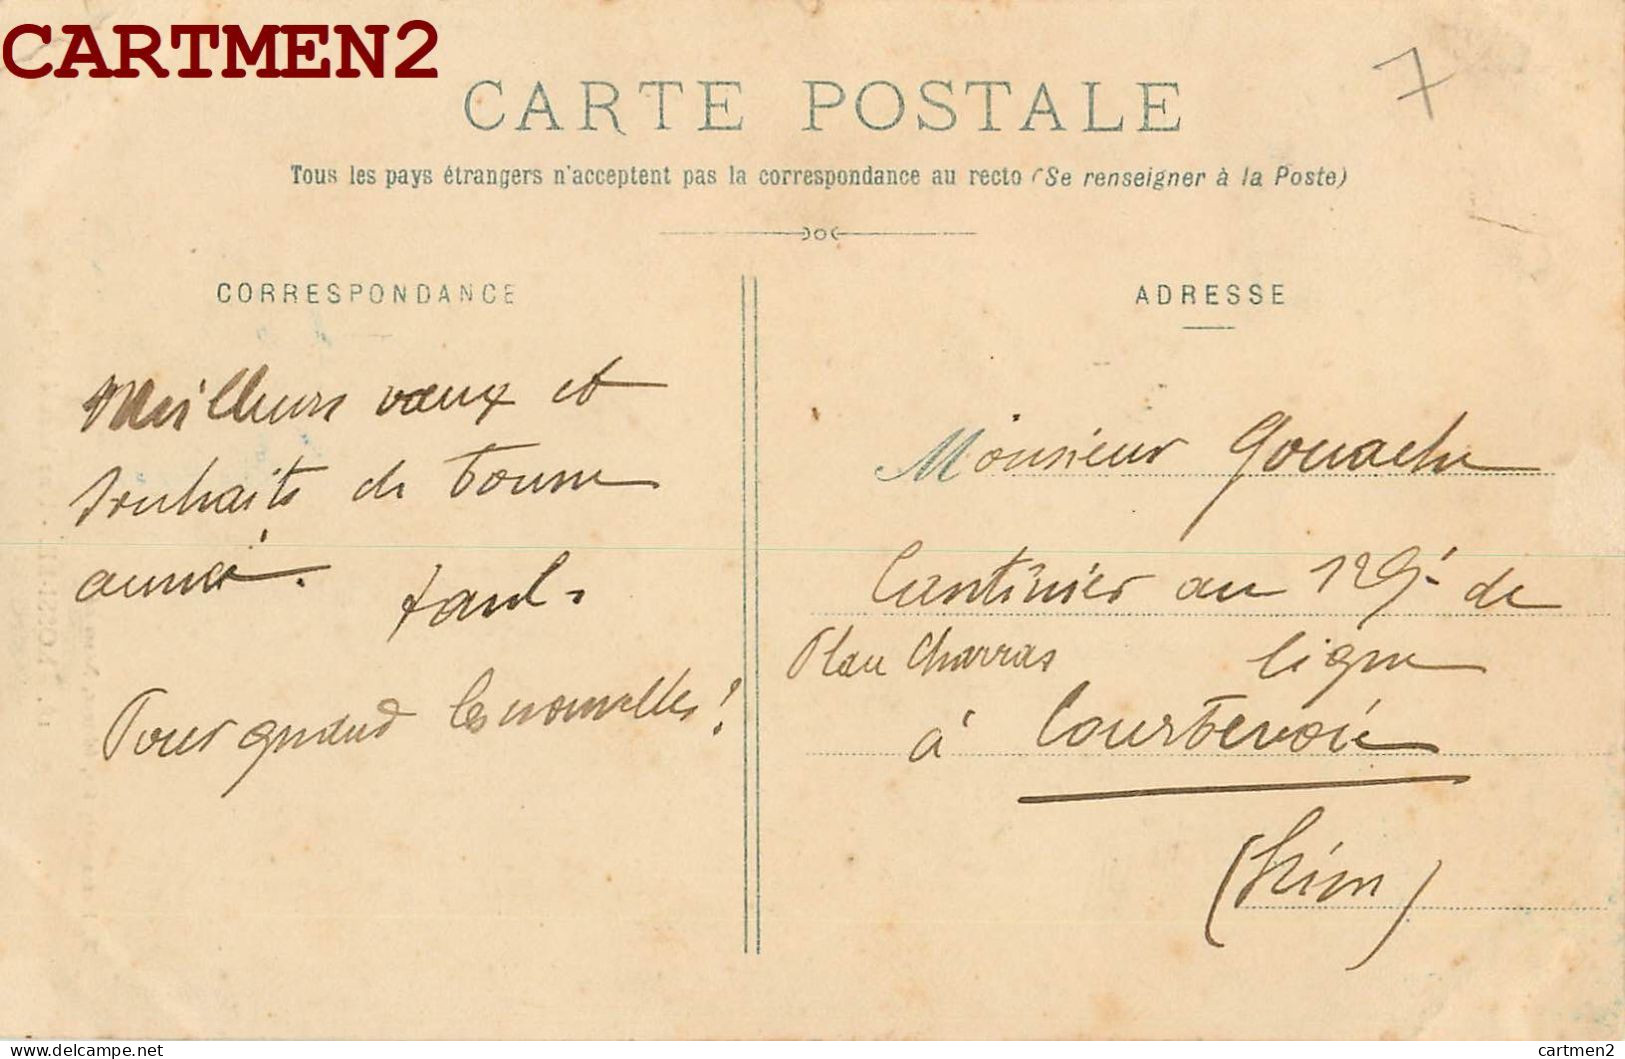 CARTMEN2
7
CARTE POSTALE
Tous les pays étrangers n'acceptent pas la correspondance au recto (Se renseigner à la Poste)
CORRESPONDANCE
Meilleurs vœux et
souhaits de bonne
année.
Paul.
Pour quand les nouvelles!
ADRESSE
Monsieur Gouache
Cantinier au 129é de
Place Charras ligne
à Courbevoie
(Seine)
www.delcampe.net
cartmen2